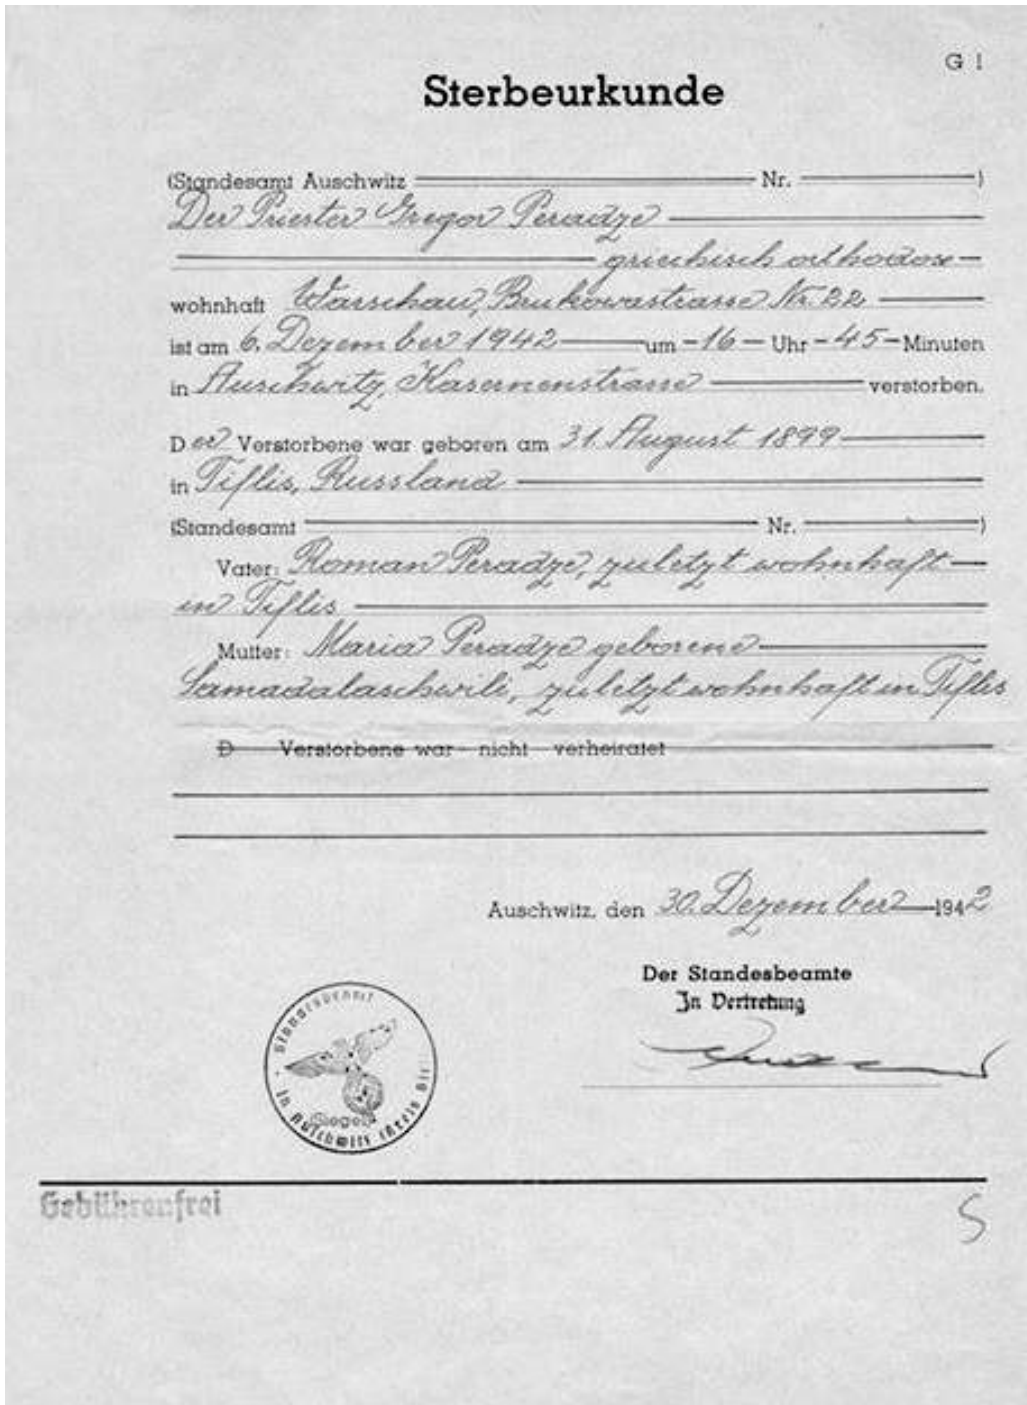 G I
Sterbeurkunde
(Standesamt Auschwitz Nr. )
Der Priester Gregor Peradze
griechisch orthodox
wohnhaft Warschau, Brukowastrasse Nr. 22
ist am 6. Dezember 1942 um 16 Uhr 45 Minuten
in Auschwitz, Kasernenstrasse verstorben.
Der Verstorbene war geboren am 31. August 1899
in Tiflis, Russland
(Standesamt Nr. )
Vater: Roman Peradze, zuletzt wohnhaft
in Tiflis
Mutter: Maria Peradze geborene
Samadalaschwili, zuletzt wohnhaft in Tiflis
D Verstorbene war nicht verheiratet
Auschwitz, den 30. Dezember 1942
Der Standesbeamte
In Vertretung
Standesbeamt
in Auschwitz (Kreis
(Siegel)
Gebührenfrei
S